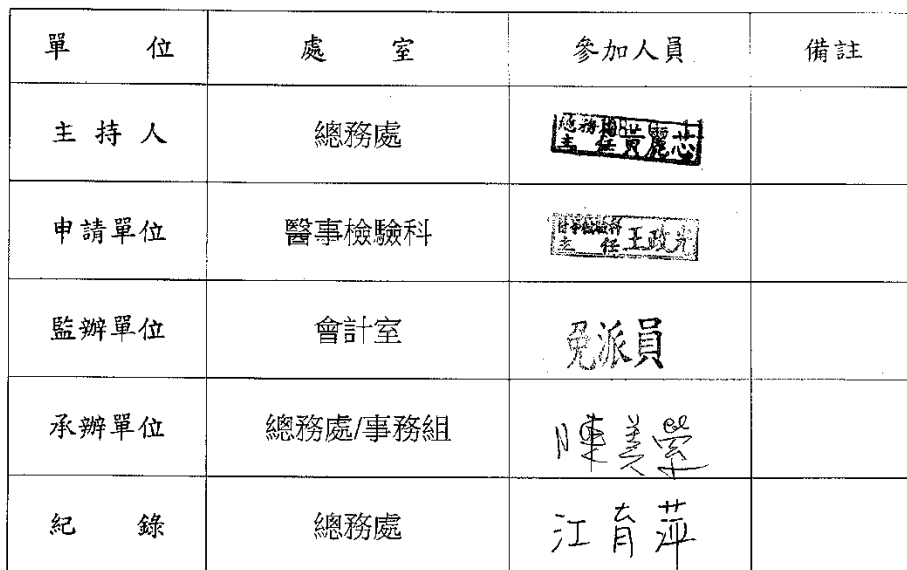 單 位 處 室 參加人員 備註
主持人 總務處 總務 主任 黃麗芯
申請單位 醫事檢驗科 醫事檢驗科 主任 王政光
監辦單位 會計室 免派員
承辦單位 總務處/事務組 陳美
紀錄 總務處 江育萍